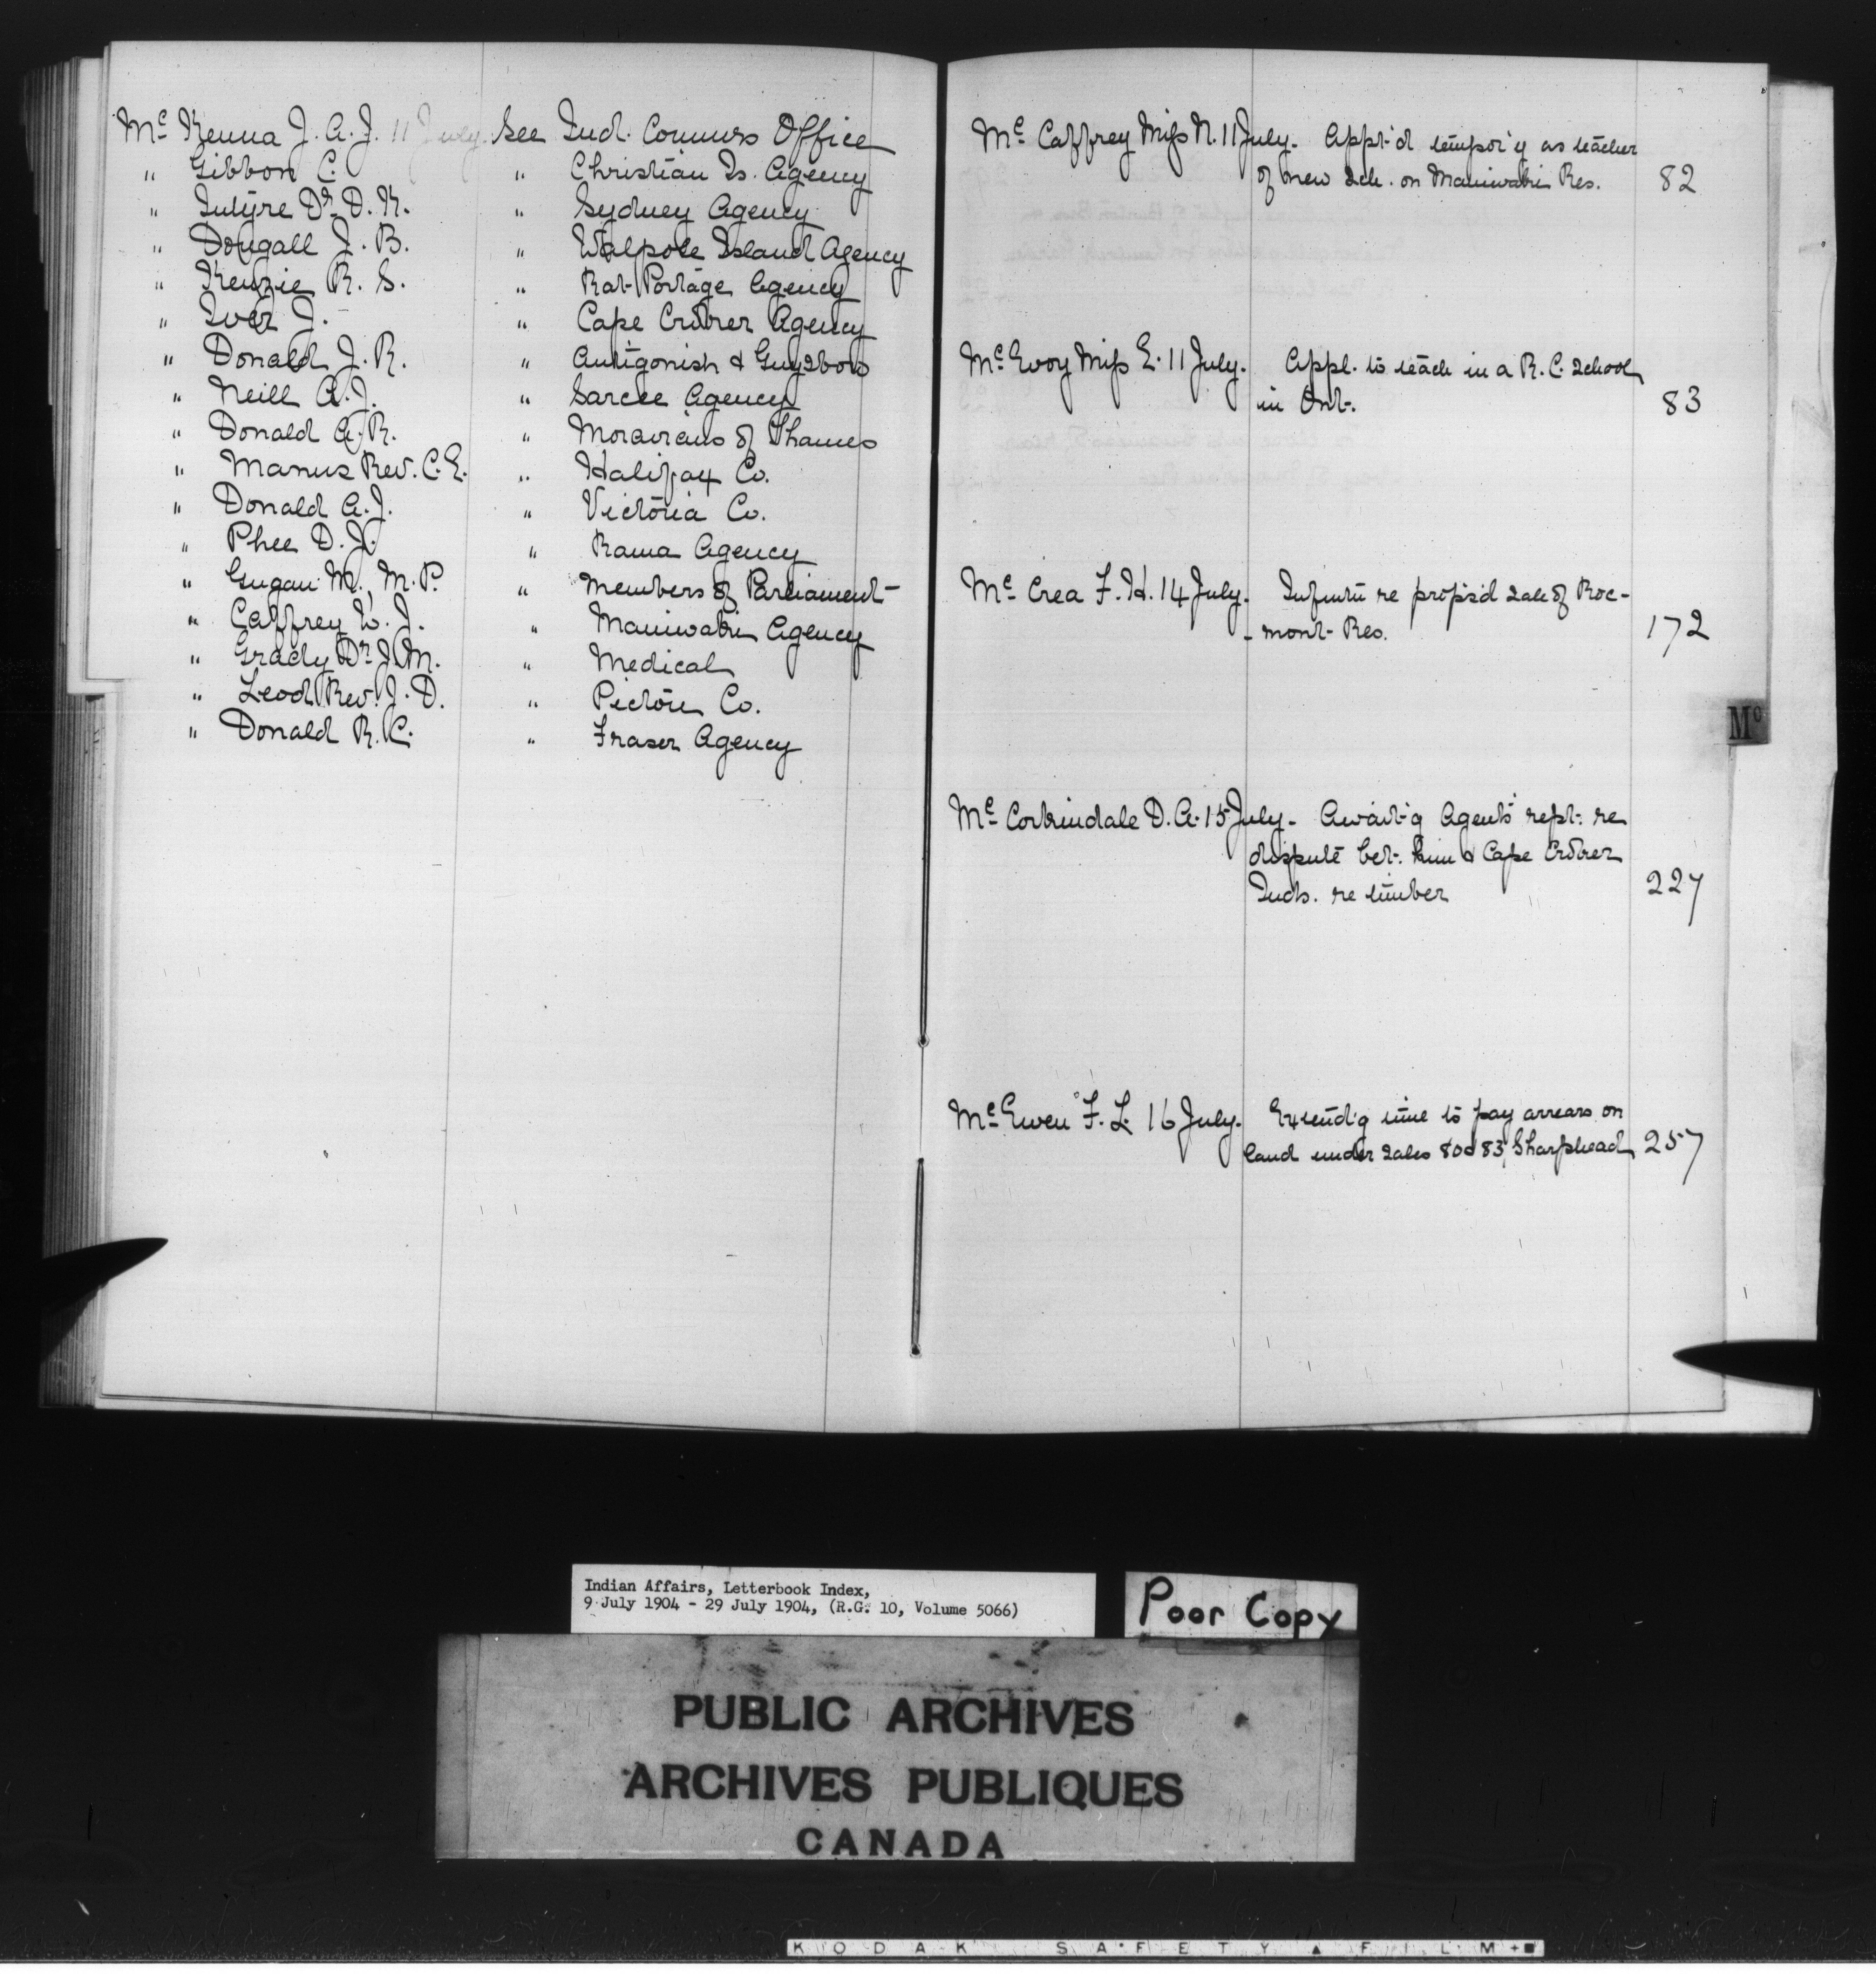 Mc Kenna J. A. J. 11 July. See Ind. Commrs Office
" Gibbon C. " Christian Is. Agency
" Intyre Dr. D. K. " Sydney Agency
" Dougall J. B. " Walpole Island Agency
" Kenzie R. S. " Rat Portage Agency
" Iver J. " Cape Croker Agency
" Donald J. R. " Antigonish & Guysboro
" Neill A. J. " Sarcee Agency
" Donald A. R. " Moravians of Thames
" Manus Rev. C. E. " Halifax Co.
" Donald A. J. " Victoria Co.
" Phee D. J. " Rama Agency
" Gugan M., M. P. " Members of Parliament
" Caffrey W. J. " Maniwaki Agency
" Grady Dr. J. M. " Medical
" Leod Rev. J. D. " Pictou Co.
" Donald R. C. " Fraser Agency
Mc Caffrey Miss N. 11 July. Appt'd tempor'y as teacher
of new sch. on Maniwaki Res. 82
Mc Evoy Miss E. 11 July. Appl. to teach in a R. C. School
in Ont. 83
Mc Crea F. H. 14 July. re propos'd sale of Roc-
-mont Res. 172
Mc D. A. 15 July. Await'g Agent's rept. re
dispute bet. him & Cape Croker
Inds. re timber 227
Mc Ewen F. L. 16 July. Extend'g time to pay arrears on
land under sales 80 & 83, Sharphead 257
Mc
Indian Affairs, Letterbook Index,
9 July 1904 - 29 July 1904, (R.G. 10, Volume 5066)
Poor Copy
PUBLIC ARCHIVES
ARCHIVES PUBLIQUES
CANADA
KODAK SAFETY FILM